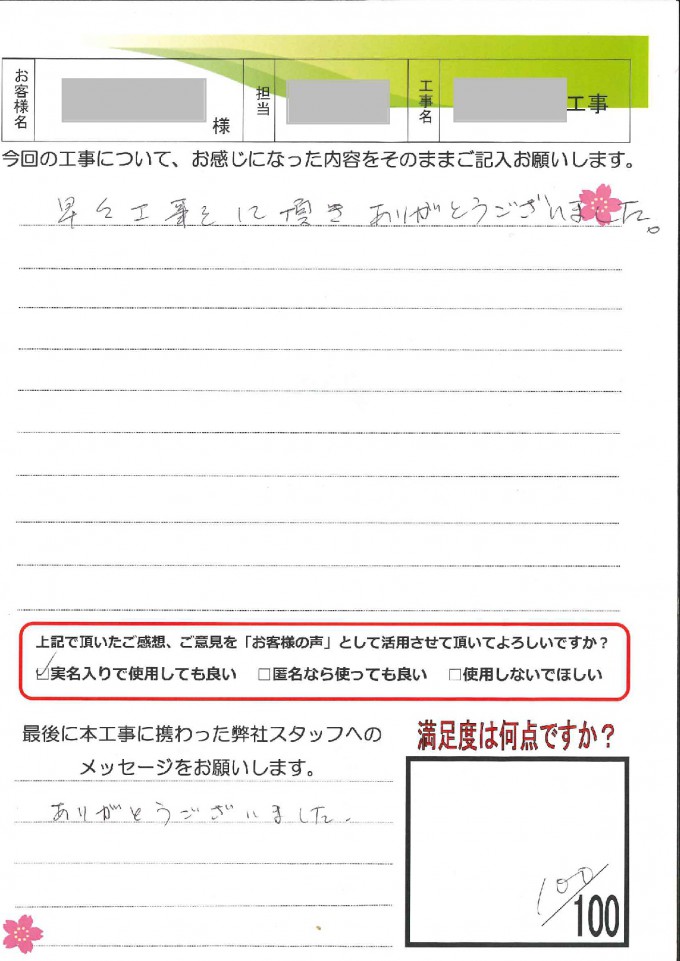 お客様名 様 担当 工事名 工事
今回の工事について、お感じになった内容をそのままご記入お願いします。
早々工事そに頂きありがとうございました。
上記で頂いたご感想、ご意見を「お客様の声」として活用させて頂いてよろしいですか？
☑実名入りで使用しても良い □匿名なら使っても良い □使用しないでほしい
最後に本工事に携わった弊社スタッフへの
メッセージをお願いします。
ありがとうございました。
満足度は何点ですか？
100
100